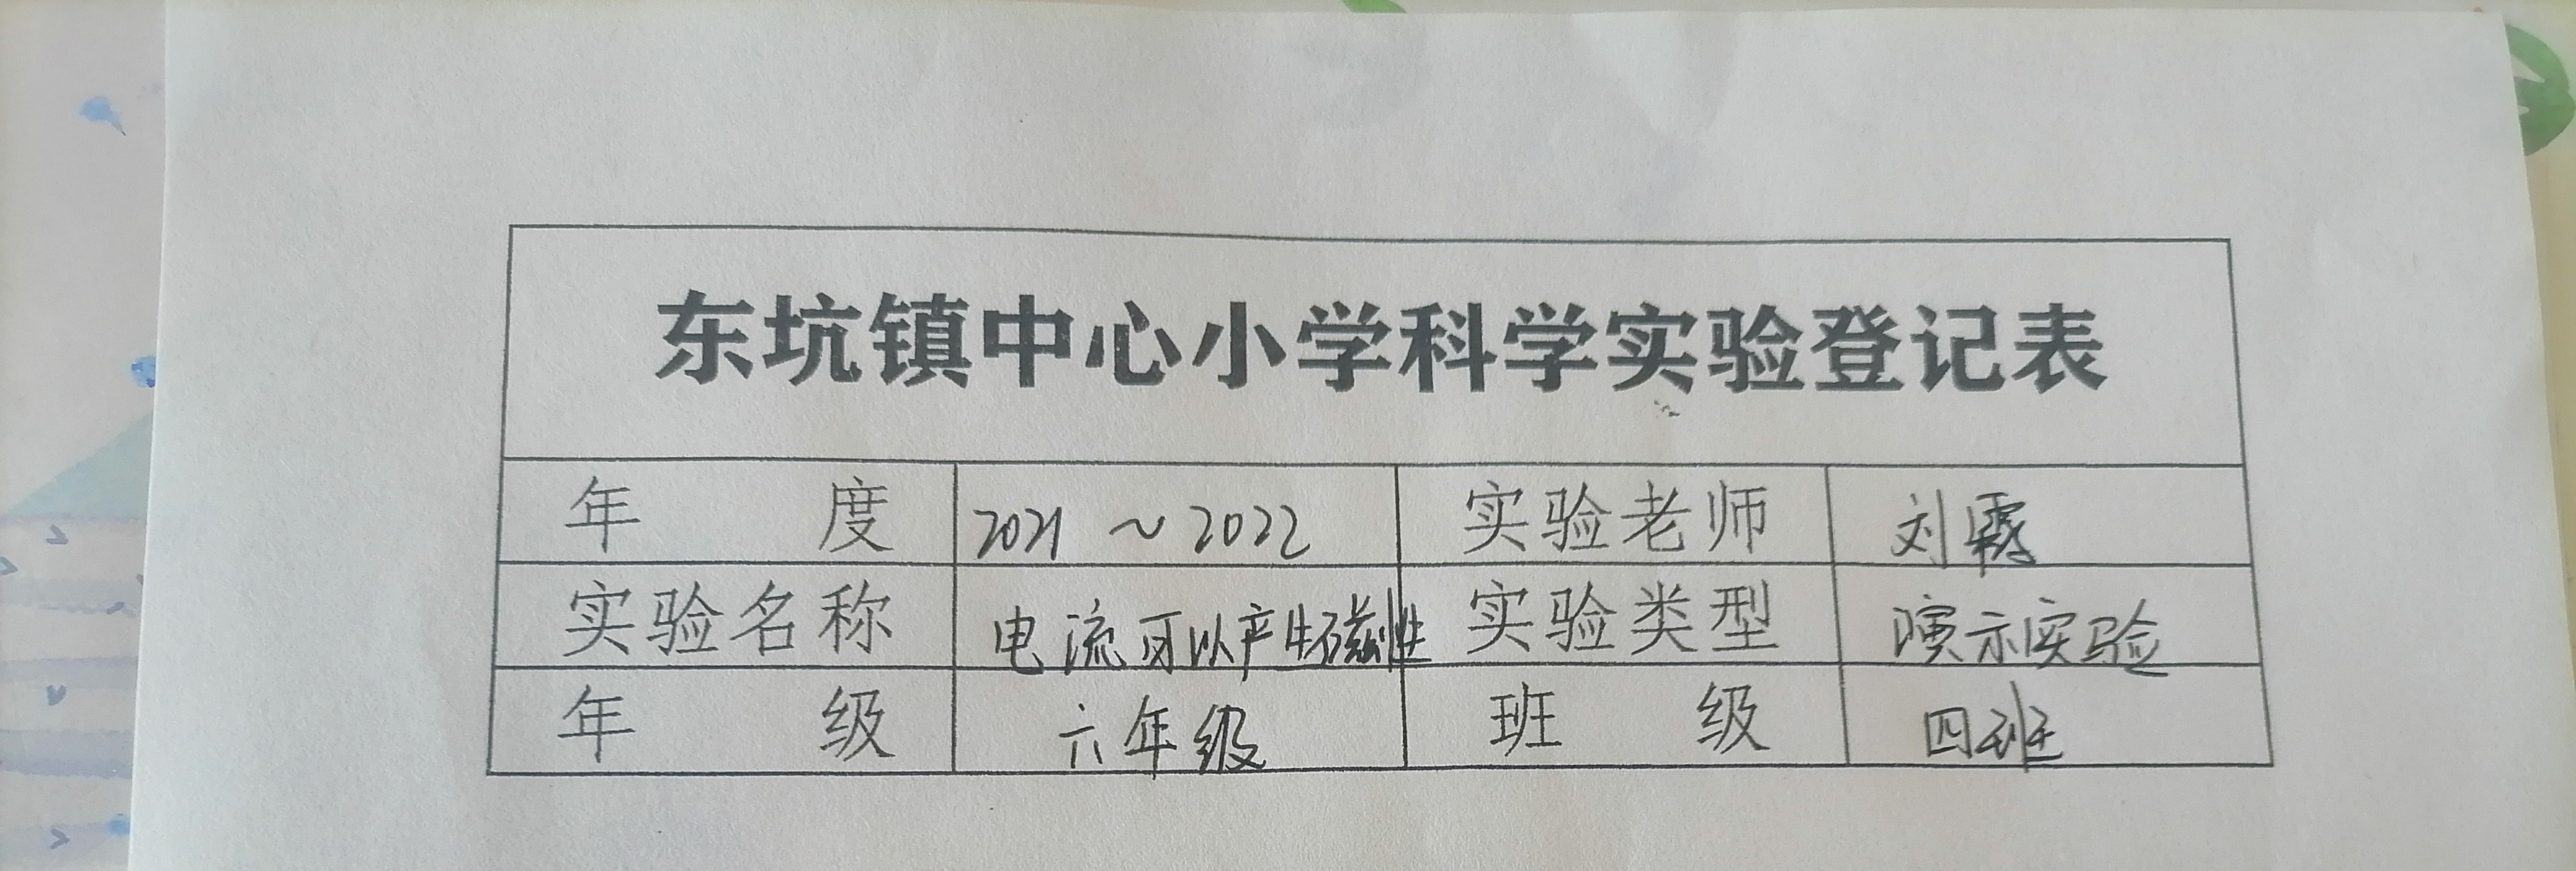 东坑镇中心小学科学实验登记表
年 度 2021 ~ 2022 实验老师 刘霞
实验名称 电流可以产生磁性 实验类型 演示实验
年 级 六年级 班 级 四班